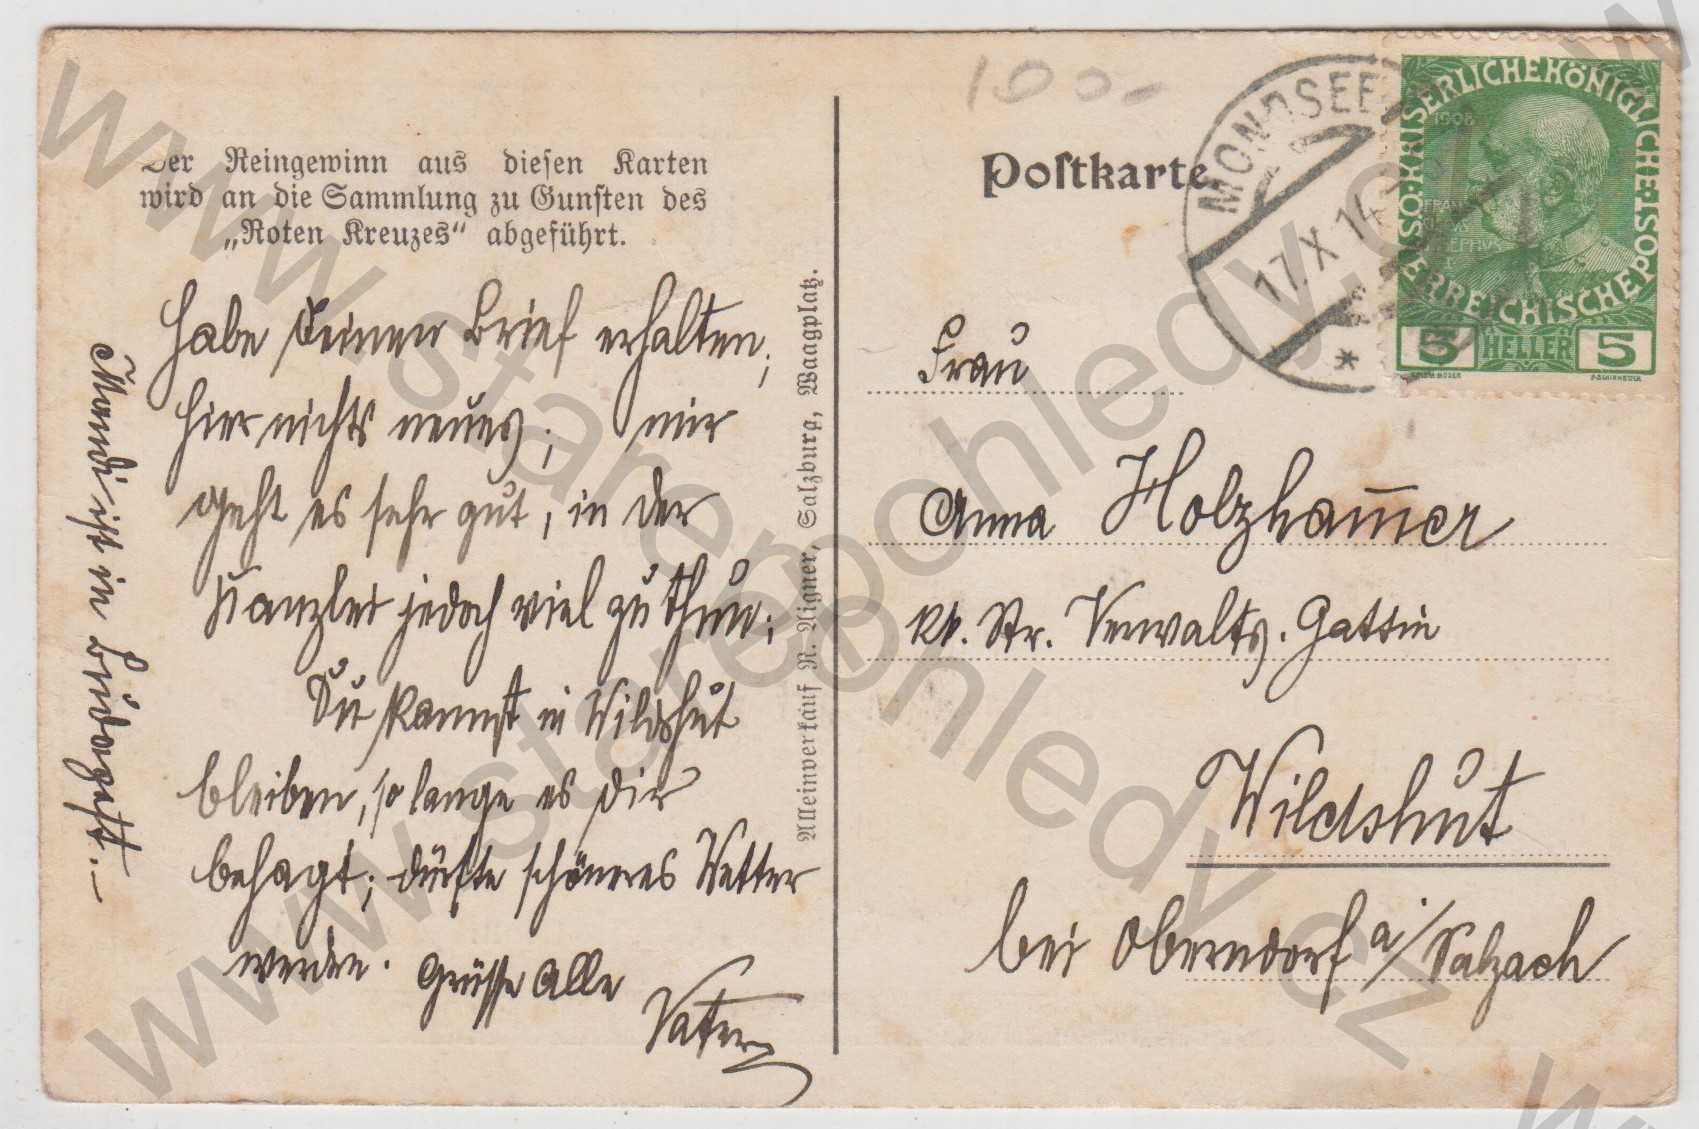 Der Reingewinn aus diesen Karten
wird an die Sammlung zu Gunsten des
„Roten Kreuzes“ abgeführt.
Habe Deinen Brief erhalten,
hier nichts neues; mir
geht es sehr gut, in der
Kanzlei jedoch viel zu thun;
Du kannst in Wildshut
bleiben, so lange es dir
behagt; dürfte schöneres Wetter
werden. Grüsse Alle
Vater
Mandi ist in
Alleinverkauf R. Aigner, Salzburg, Waagplatz.
100.-
Postkarte
MONDSEE
17. X. 14
KAISERLICHE KÖNIGLICHE ÖSTERREICHISCHE POST
1908
5 HELLER 5
Frau
Anna Holzham̄er
kk. Str. Verwalts. Gattin
Wildshut
bei Oberndorf a/Salzach
www.starepohledy.cz
www.starepohledy.cz